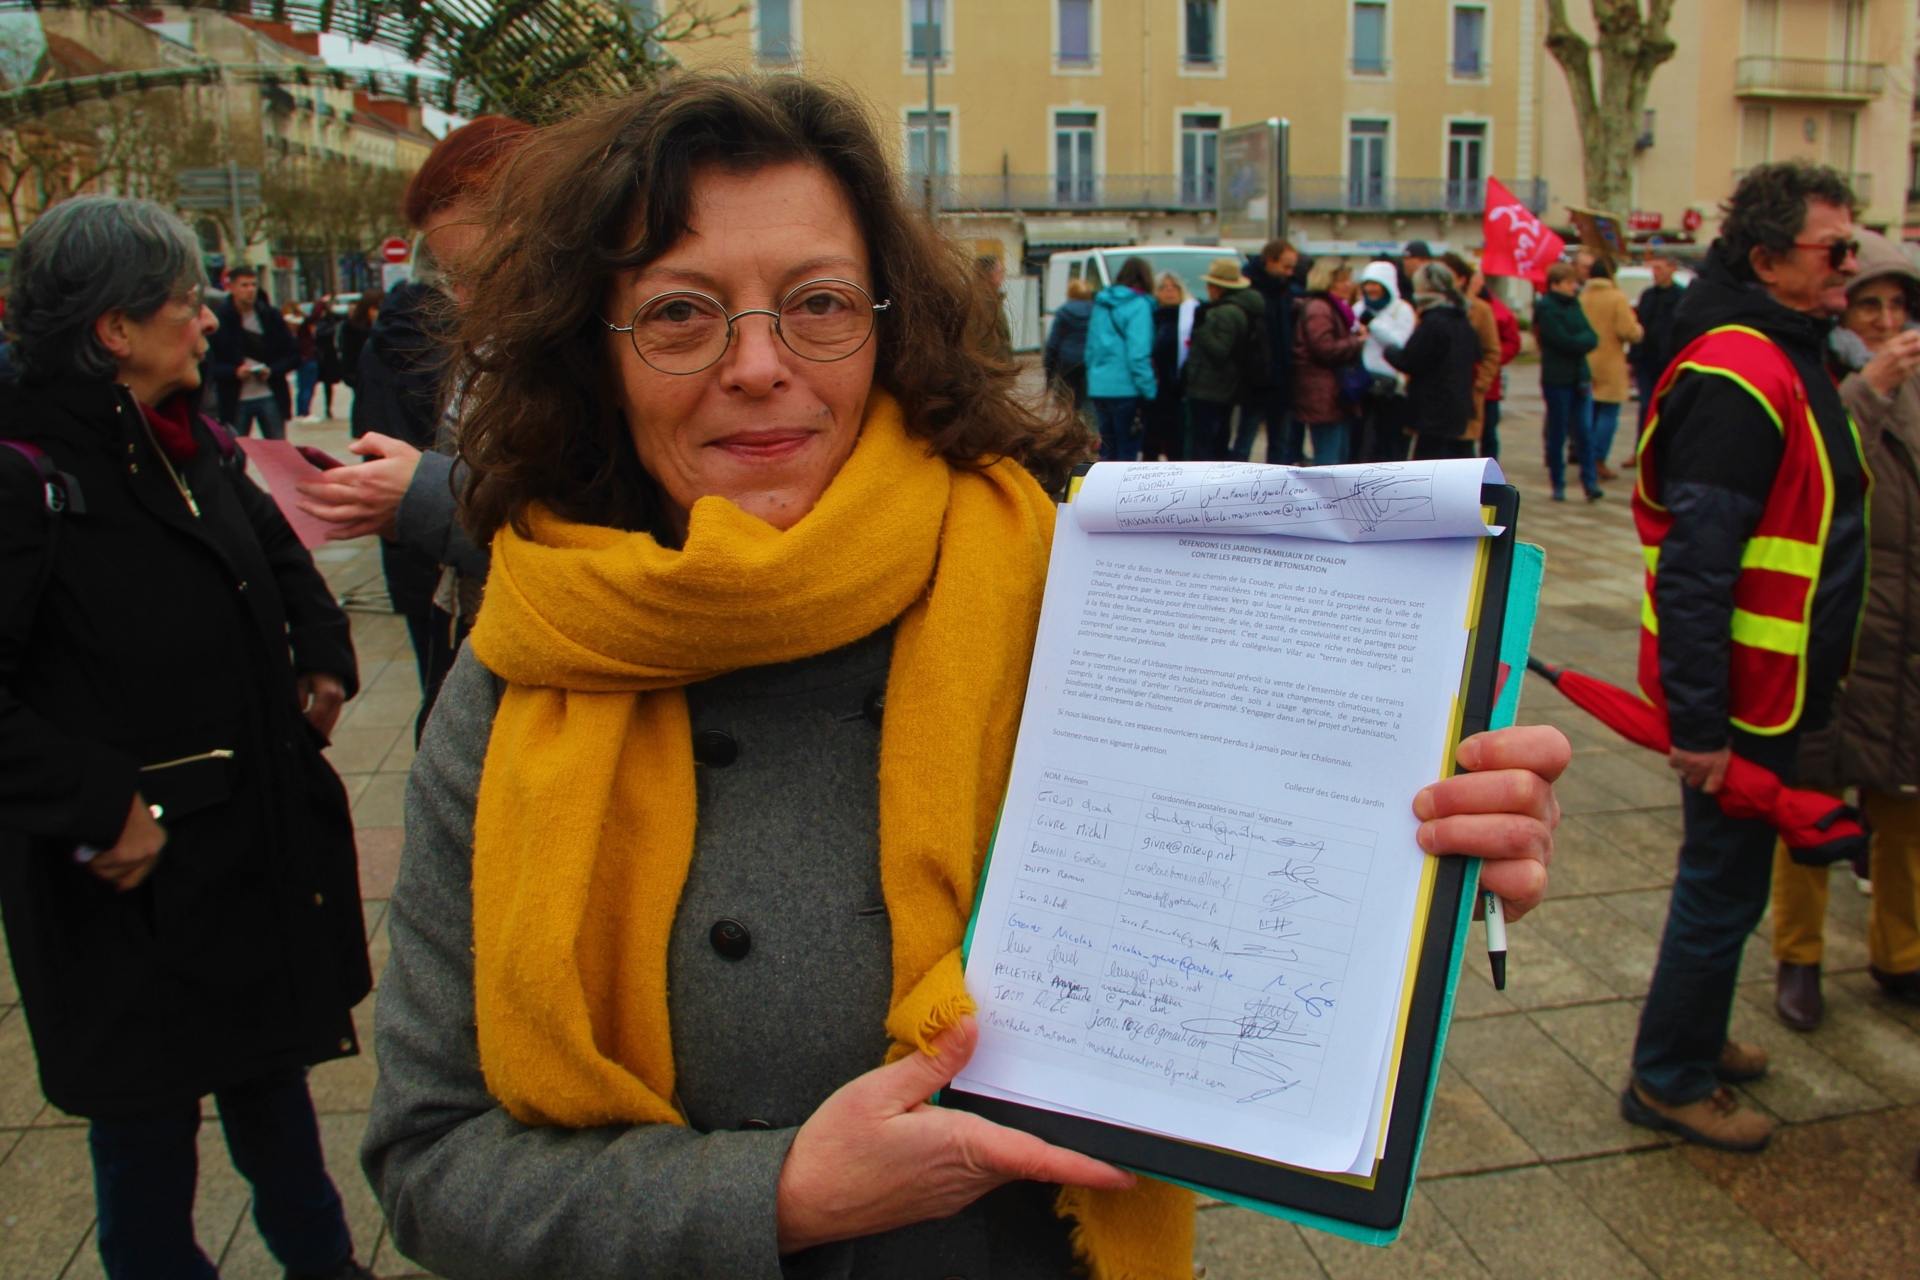 NOTTARIS
MAISONNEUVE Lucile lucile.maisonneuve@gmail.com
DEFENDONS LES JARDINS FAMILIAUX DE CHALON
CONTRE LES PROJETS DE BETONISATION
De la rue du Bois de Menuse au chemin de la Coudre, plus de 10 ha d'espaces nourriciers sont
menacés de destruction. Ces zones maraîchères très anciennes sont la propriété de la ville de
Chalon, gérées par le service des Espaces Verts qui loue la plus grande partie sous forme de
parcelles aux Chalonnais pour être cultivées. Plus de 200 familles entretiennent ces jardins qui sont
à la fois des lieux de productionalimentaire, de vie, de santé, de convivialité et de partages pour
tous les jardiniers amateurs qui les occupent. C'est aussi un espace riche enbiodiversité qui
comprend une zone humide identifiée près du collègeJean Vilar au "terrain des tulipes", un
patrimoine naturel précieux.
Le dernier Plan Local d'Urbanisme Intercommunal prévoit la vente de l'ensemble de ces terrains
pour y construire en majorité des habitats individuels. Face aux changements climatiques, on a
compris la nécessité d'arrêter l'artificialisation des sols à usage agricole, de préserver la
biodiversité, de privilégier l'alimentation de proximité. S'engager dans un tel projet d'urbanisation,
c'est aller à contresens de l'histoire.
Si nous laissons faire, ces espaces nourriciers seront perdus à jamais pour les Chalonnais.
Soutenez-nous en signant la pétition
Collectif des Gens du Jardin
NOM Prénom Coordonnées postales ou mail Signature
GIROD
GIVRE Michel givre@riseup.net
BONNIN Evelyne
DUFFY Romain
Nicolas
PELLETIER Claude @gmail.com
Joan ROZE joan.roze@gmail.com
Antonin